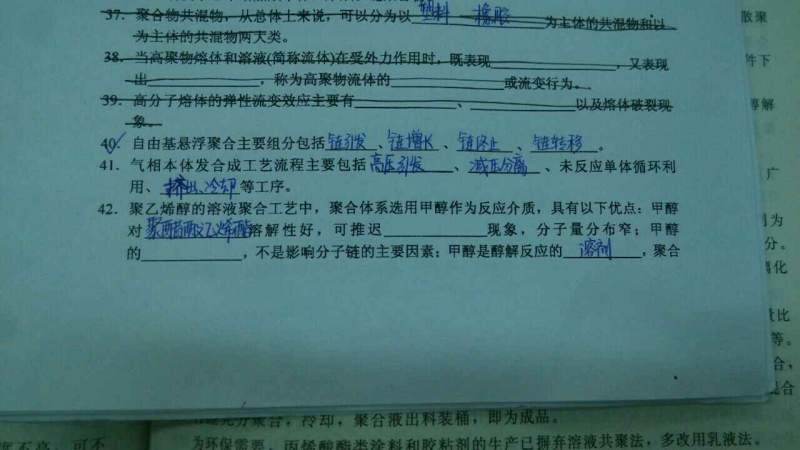 37. 聚合物共混物，从总体上来说，可以分为以 塑料 橡胶 为主体的共混物和以
为主体的共混物两大类。
38. 当高聚物熔体和溶液(简称流体)在受外力作用时，既表现____________，又表现
出____________，称为高聚物流体的____________或流变行为。
39. 高分子熔体的弹性流变效应主要有____________、____________以及熔体破裂现
象。
40. 自由基悬浮聚合主要组分包括 链引发 、链增长 、链终止 、链转移 。
41. 气相本体发合成工艺流程主要包括 高压引发 、减压分离 、未反应单体循环利
用、挤出、冷却 等工序。
42. 聚乙烯醇的溶液聚合工艺中，聚合体系选用甲醇作为反应介质，具有以下优点：甲醇
对 聚醋酸乙烯酯 溶解性好，可推迟____________现象，分子量分布窄；甲醇
的____________，不是影响分子链的主要因素；甲醇是醇解反应的 溶剂 ，聚合
散聚
件下
醇解
广
列为
分。
化
量比
等。
合，
混合
分聚合，冷却，聚合液出料装桶，即为成品。
为环保需要，丙烯酸酯类涂料和胶粘剂的生产已摒弃溶液共聚法，多改用乳液法。
度不高，可不